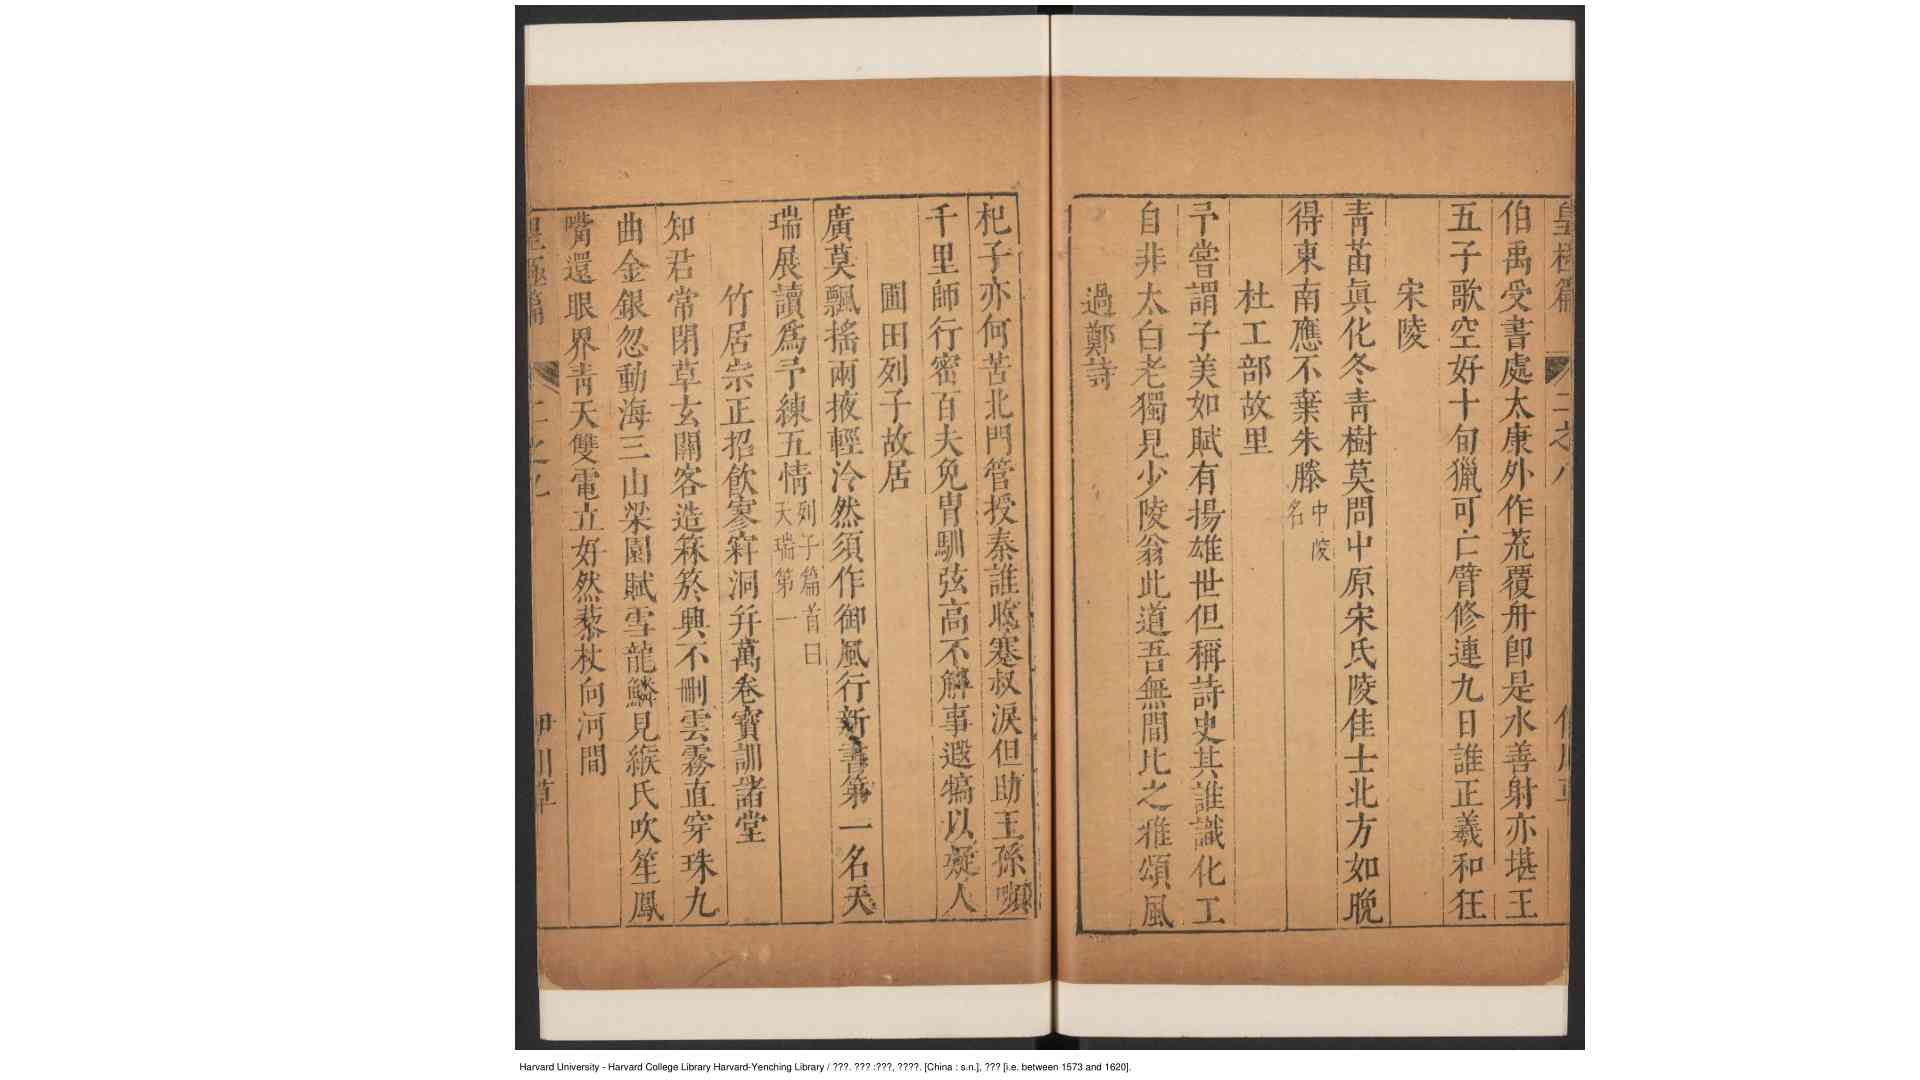 伯禹受書處太康外作荒覆舟卽是水善射亦堪王
五子歌空好十旬獵可亡臂修連九日誰正羲和狂
宋陵
靑苗眞化冬靑樹莫問中原宋氏陵佳士北方如晚
得東南應不棄朱滕中陵名
杜工部故里
予嘗謂子美如賦有揚雄世但稱詩史其誰識化工
自非太白老獨見少陵翁此道吾無間比之雅頌風
過鄭詩
杞子亦何苦北門管授秦誰收蹇叔淚但助王孫嚬
千里師行密百夫免胄馴弦高不解事遐犒以疑人
圃田列子故居
廣莫飄搖兩掖輕泠然須作御風行新書第一名天
瑞展讀爲予練五情列子篇首曰天瑞第一
竹居宗正招飲寥穼洞幷萬卷寶訓諸堂
知君常閉草玄關客造箖箊興不刪雲霧直穿珠九
曲金銀忽動海三山梁園賦雪龍鱗見緱氏吹笙鳳
嘴還眼界靑天雙電立好然藜杖向河間
二之
Harvard University - Harvard College Library Harvard-Yenching Library / ???. ??? :???, ????. [China : s.n.], ??? [i.e. between 1573 and 1620].